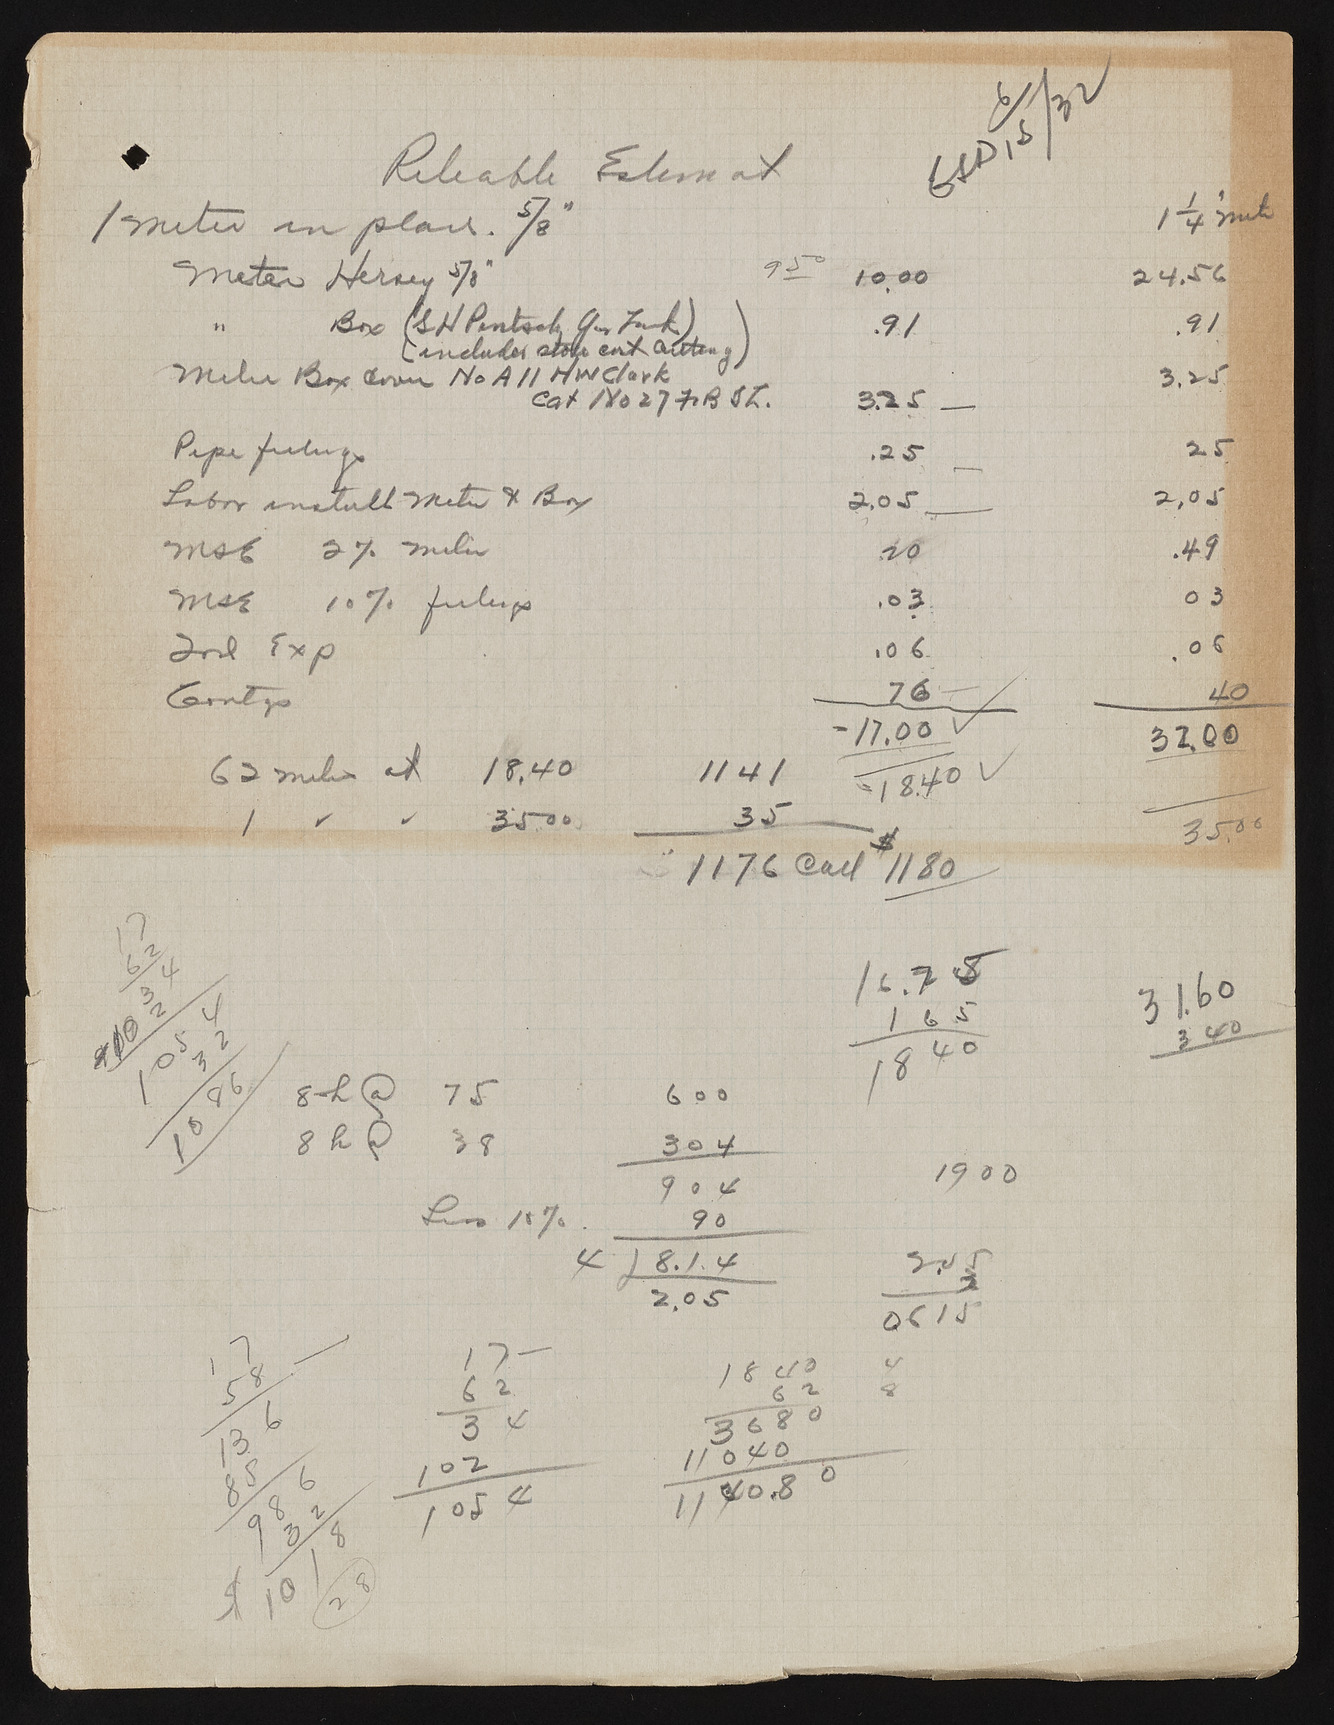 6/15/32
Reliable Estimat
1 Meter in place. 5/8"
1 1/4" Mete
Meter Hersey 5/8" 9 50 10.00 24.56
" Box (SH Pintsch Gas Tank) .91 .91
(includes store cost cutting)
Meter Box Cover No A11 HW Clark 3.25
Cat No 27 F B St. 3.25 —
Pipe fittings .25 — 25
Labor install Meter & Box 2.05 — 2.05
MSE 2% meter 20 .49
MSE 10% fittings .03 03
Exp .06 .06
Contgs 76 — 40
- 17.00 ✓ 32.00
62 meters at 18.40 1141 - 18.40 ✓
1 " " 35.00 35 35.00
1176 Call $1180
17
62
34
102
1054
32
1086
16.75
165
1840
31.60
340
8 h @ 75 600
8 h @ 38 304
904 1900
Less 10%. 90
4 8.1.4
2.05
2.05
3
0615
17
58
136
85
986
32
$ 1018
28
17 —
62
34
102
1054
1840
62
3680
11040
1140.80
4
8